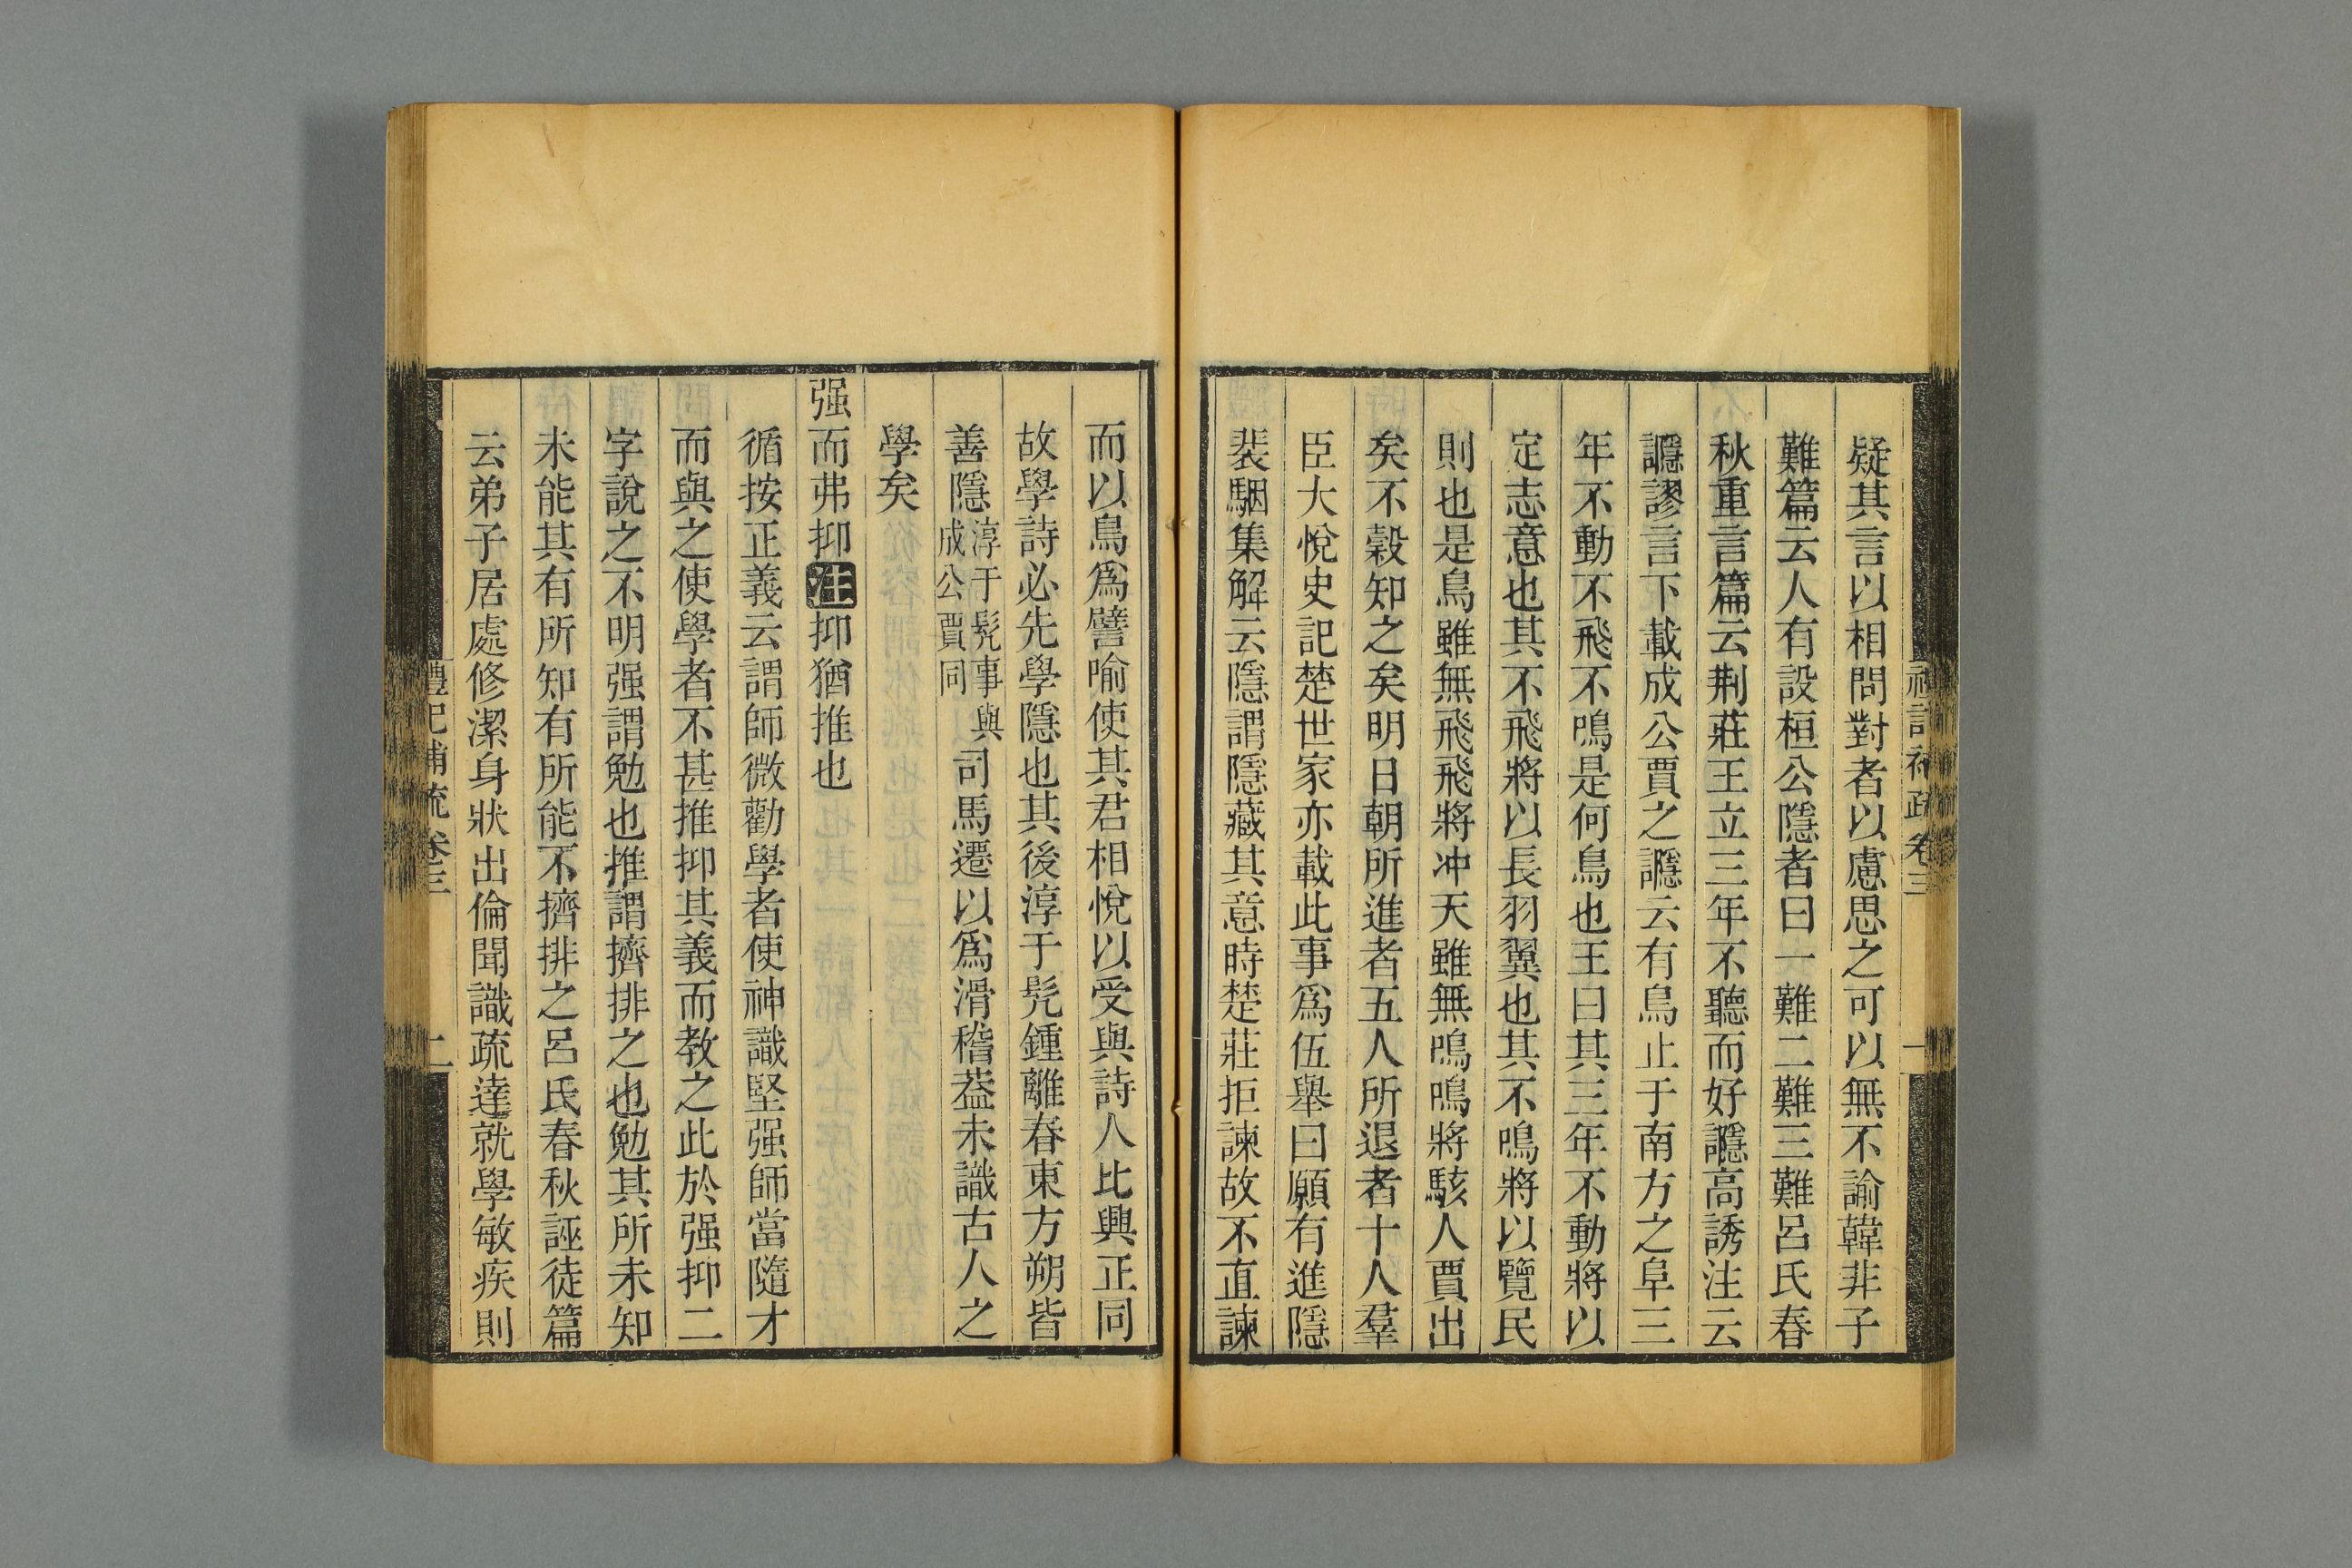 疑其言以相問對者以慮思之可以無不諭韓非子
難篇云人有設桓公隱者曰一難二難三難呂氏春
秋重言篇云荆莊王立三年不聽而好讔高誘注云
讔謬言下載成公賈之讔云有鳥止于南方之阜三
年不動不飛不鳴是何鳥也王曰其三年不動將以
定志意也其不飛將以長羽翼也其不鳴將以覽民
則也是鳥雖無飛飛將冲天雖無鳴鳴將駭人賈出
矣不穀知之矣明日朝所進者五人所退者十人羣
臣大悅史記楚世家亦載此事爲伍舉曰願有進隱
裴駰集解云隱謂隱藏其意時楚莊拒諫故不直諫
卷三
一
而以鳥爲譬喻使其君相悅以受與詩人比興正同
故學詩必先學隱也其後淳于髡鍾離春東方朔皆
善隱淳于髡事與成公賈同司馬遷以爲滑稽葢未識古人之
學矣
强而弗抑注抑猶推也
循按正義云謂師微勸學者使神識堅强師當隨才
而與之使學者不甚推抑其義而教之此於强抑二
字說之不明强謂勉也推謂擠排之也勉其所未知
未能其有所知有所能不擠排之呂氏春秋誣徒篇
云弟子居處修潔身狀出倫聞識疏達就學敏疾則
禮記補疏卷三
二